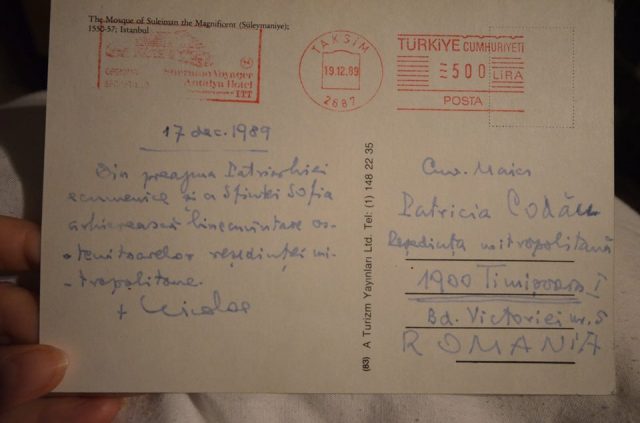 The Mosque of Suleiman the Magnificent (Süleymaniye);
1550-57; Istanbul
Sheraton Voyager
Antalya Hotel
ITT
TAKSİM
19.12.89
2687
TÜRKİYE CUMHURİYETİ
500 LİRA
POSTA
17 dec. 1989
Din preajma Patriarhiei
ecumenice și a Sfintei Sofia
arhierească binecuvîntare os-
tenitoarelor reședinței mi-
tropolitane.
+ Nicolae
(83) A Turizm Yayınları Ltd. Tel: (1) 148 22 35
Cuv. Maici
Patricia Codău
Reședința mitropolitană
1900 Timișoara I
Bd. Victoriei nr. 5
ROMANIA